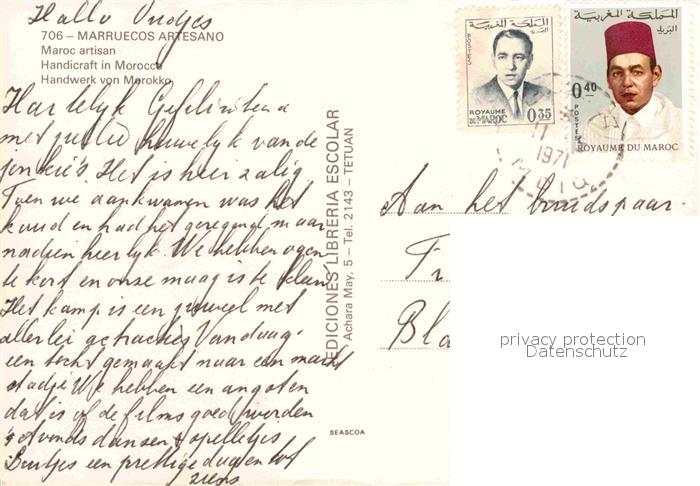 Hallo
706 – MARRUECOS ARTESANO
Maroc artisan
Handicraft in Morocco
Handwerk von Morokko
Hartelijk
met jullie huwelijk van de
Het is hier zalig
Toen we aankwamen was het
koud en had het geregend maar
nadien heerlijk. We hebben ogen
te kort en onze maag is te klein
Het kamp is een juweel met
allerlei Vandaag
een tocht gemaakt naar een markt
stadje We hebben een angsten
dat is of de films goed worden
dansen spelletjes
een prettige dag en tot
ziens
EDICIONES LIBRERIA ESCOLAR
Achara May, 5 – Tel. 2143 – TETUAN
BEASCOA
المملكة المغربية
البريد
POSTES
ROYAUME DU MAROC
0,35
المملكة المغربية
البريد
0,40
POSTES
ROYAUME DU MAROC
11
1971
Aan het bruidspaar
Fr
Bla
privacy protection
Datenschutz